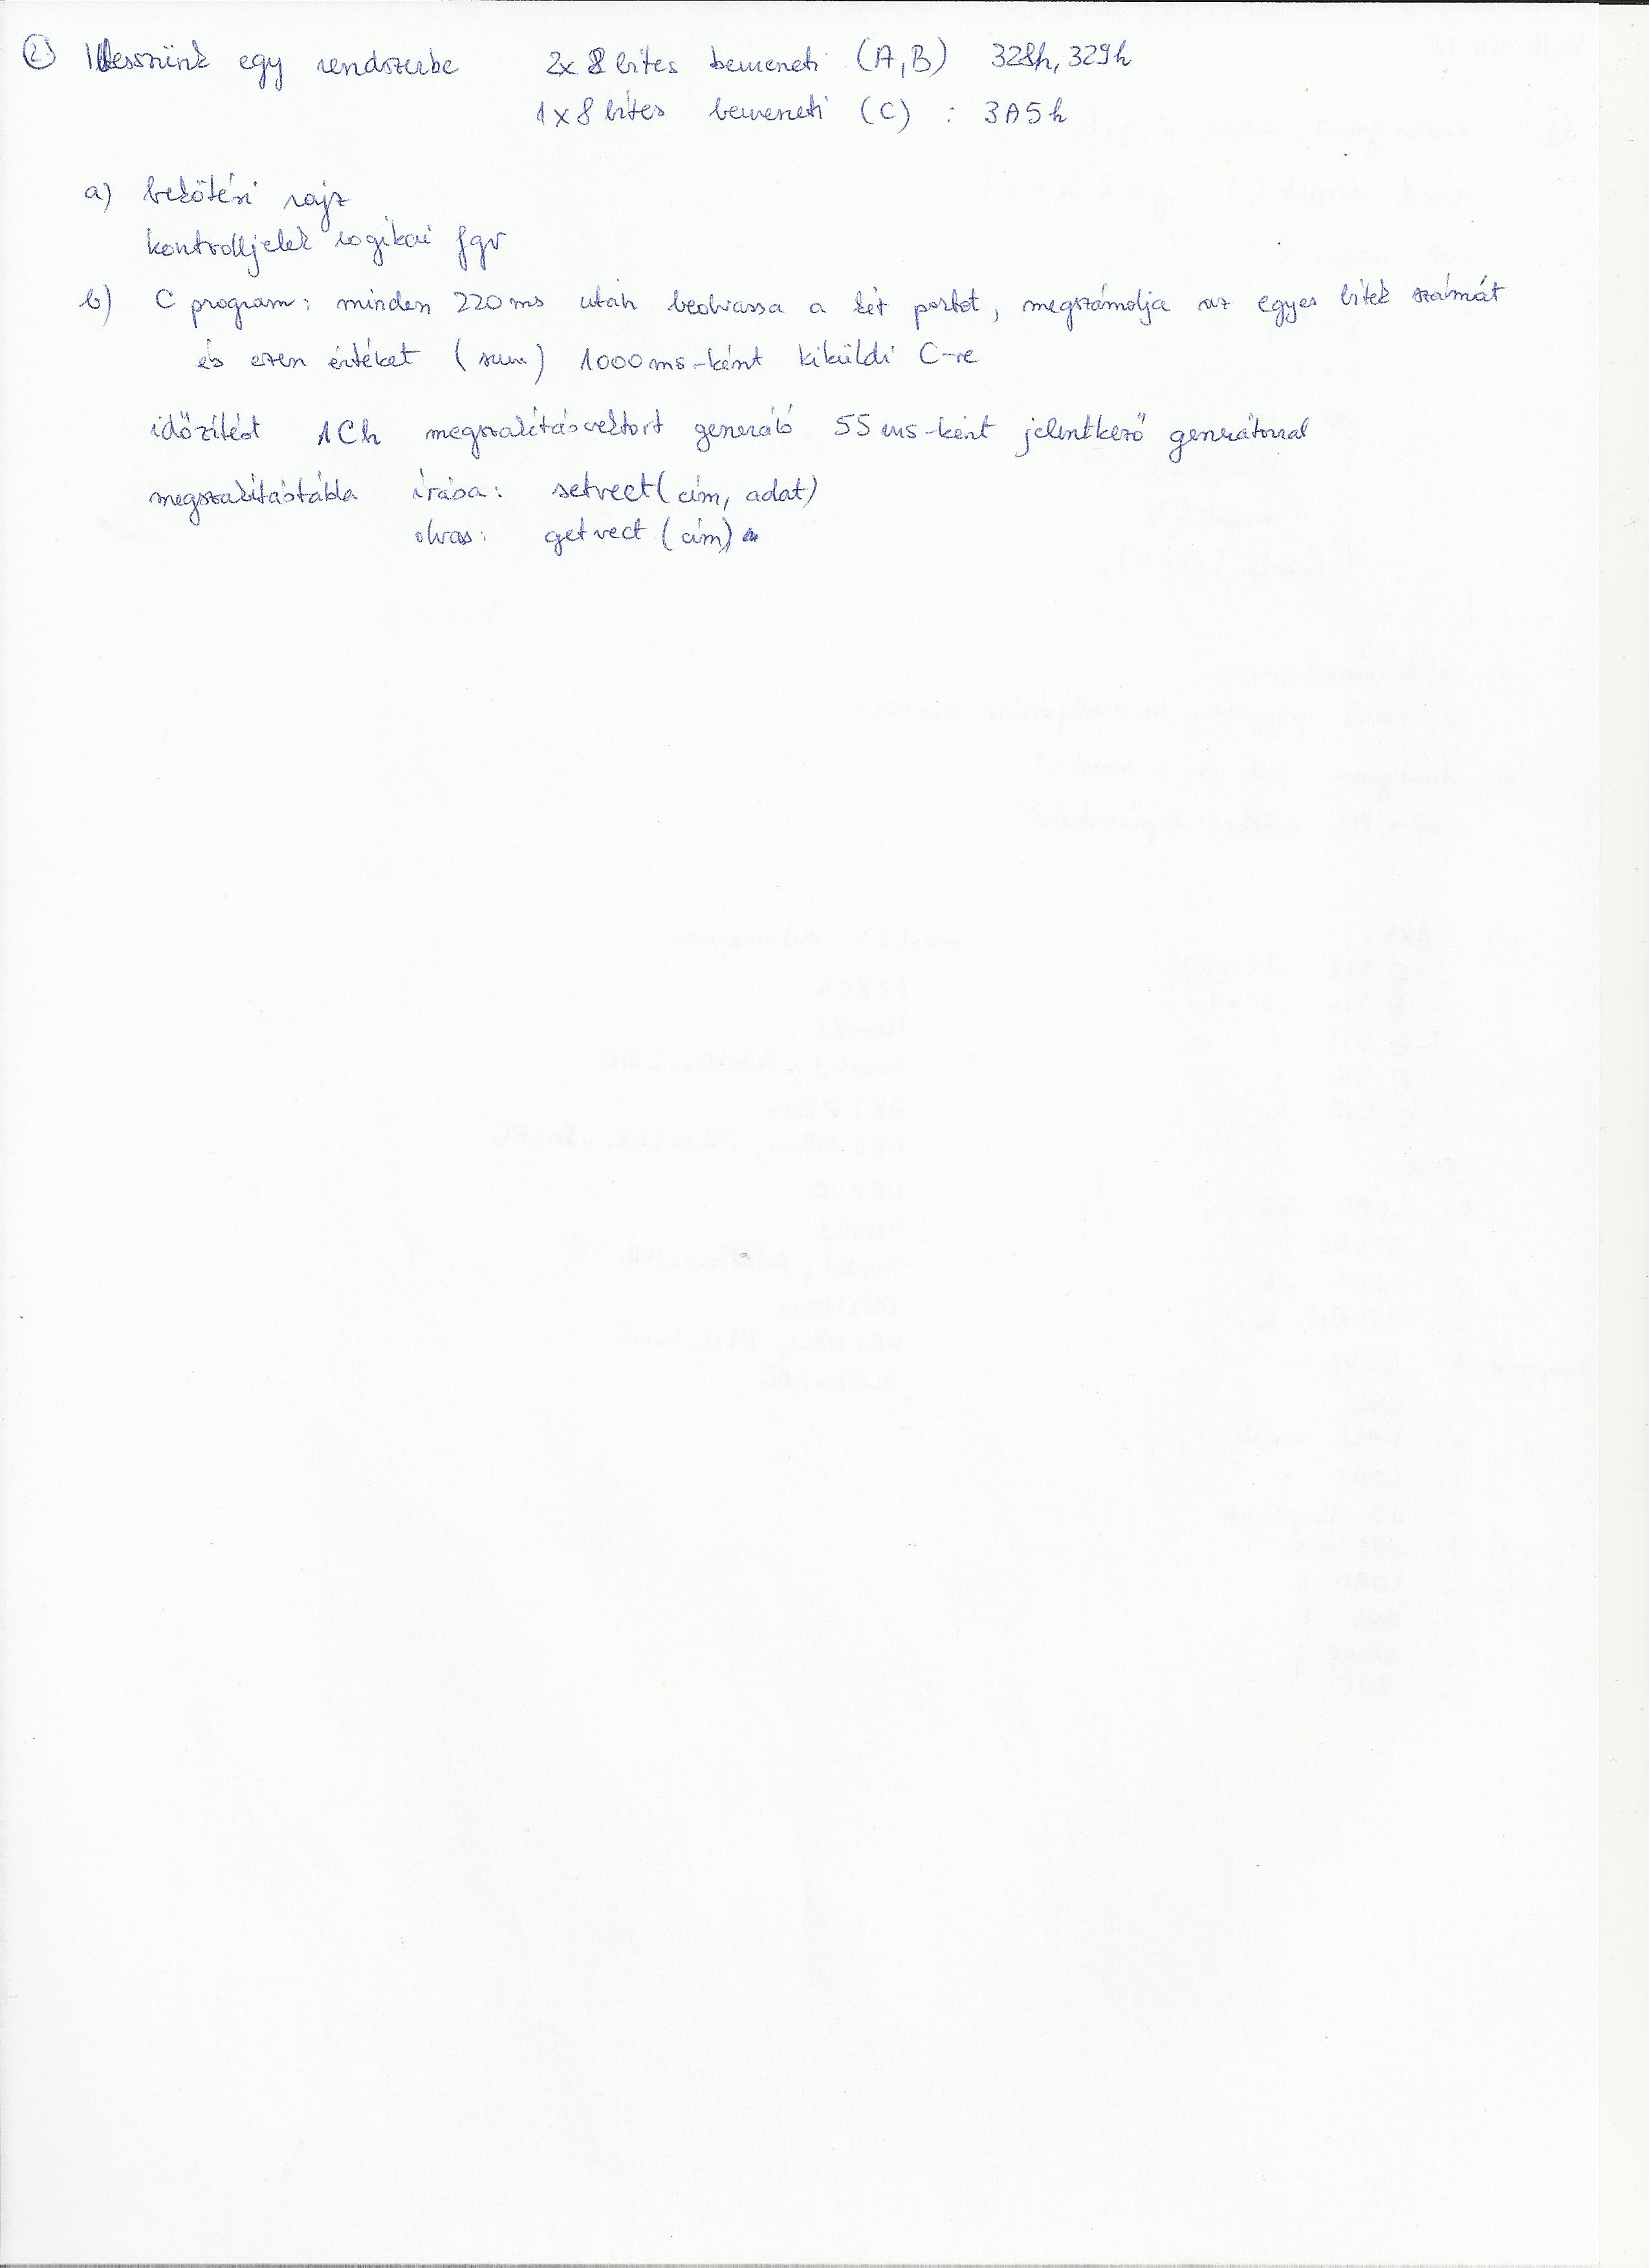 2. Illesszünk egy rendszerbe 2x 8 bites bemeneti (A,B) 328h, 329h
1x8 bites bemeneti (C) : 3A5h
a) bekötési rajz
kontrolljelek logikai fgv
b) C program: minden 220ms után beolvassa a két portot, megszámolja az egyes bitek számát
és ezen értéket (sum) 1000ms-ként kiküldi C-re
időzítést 1Ch megszakításvektort generáló 55ms-ként jelentkező generátorral
megszakítástábla írása: setvect(cím, adat)
olvas: getvect (cím)